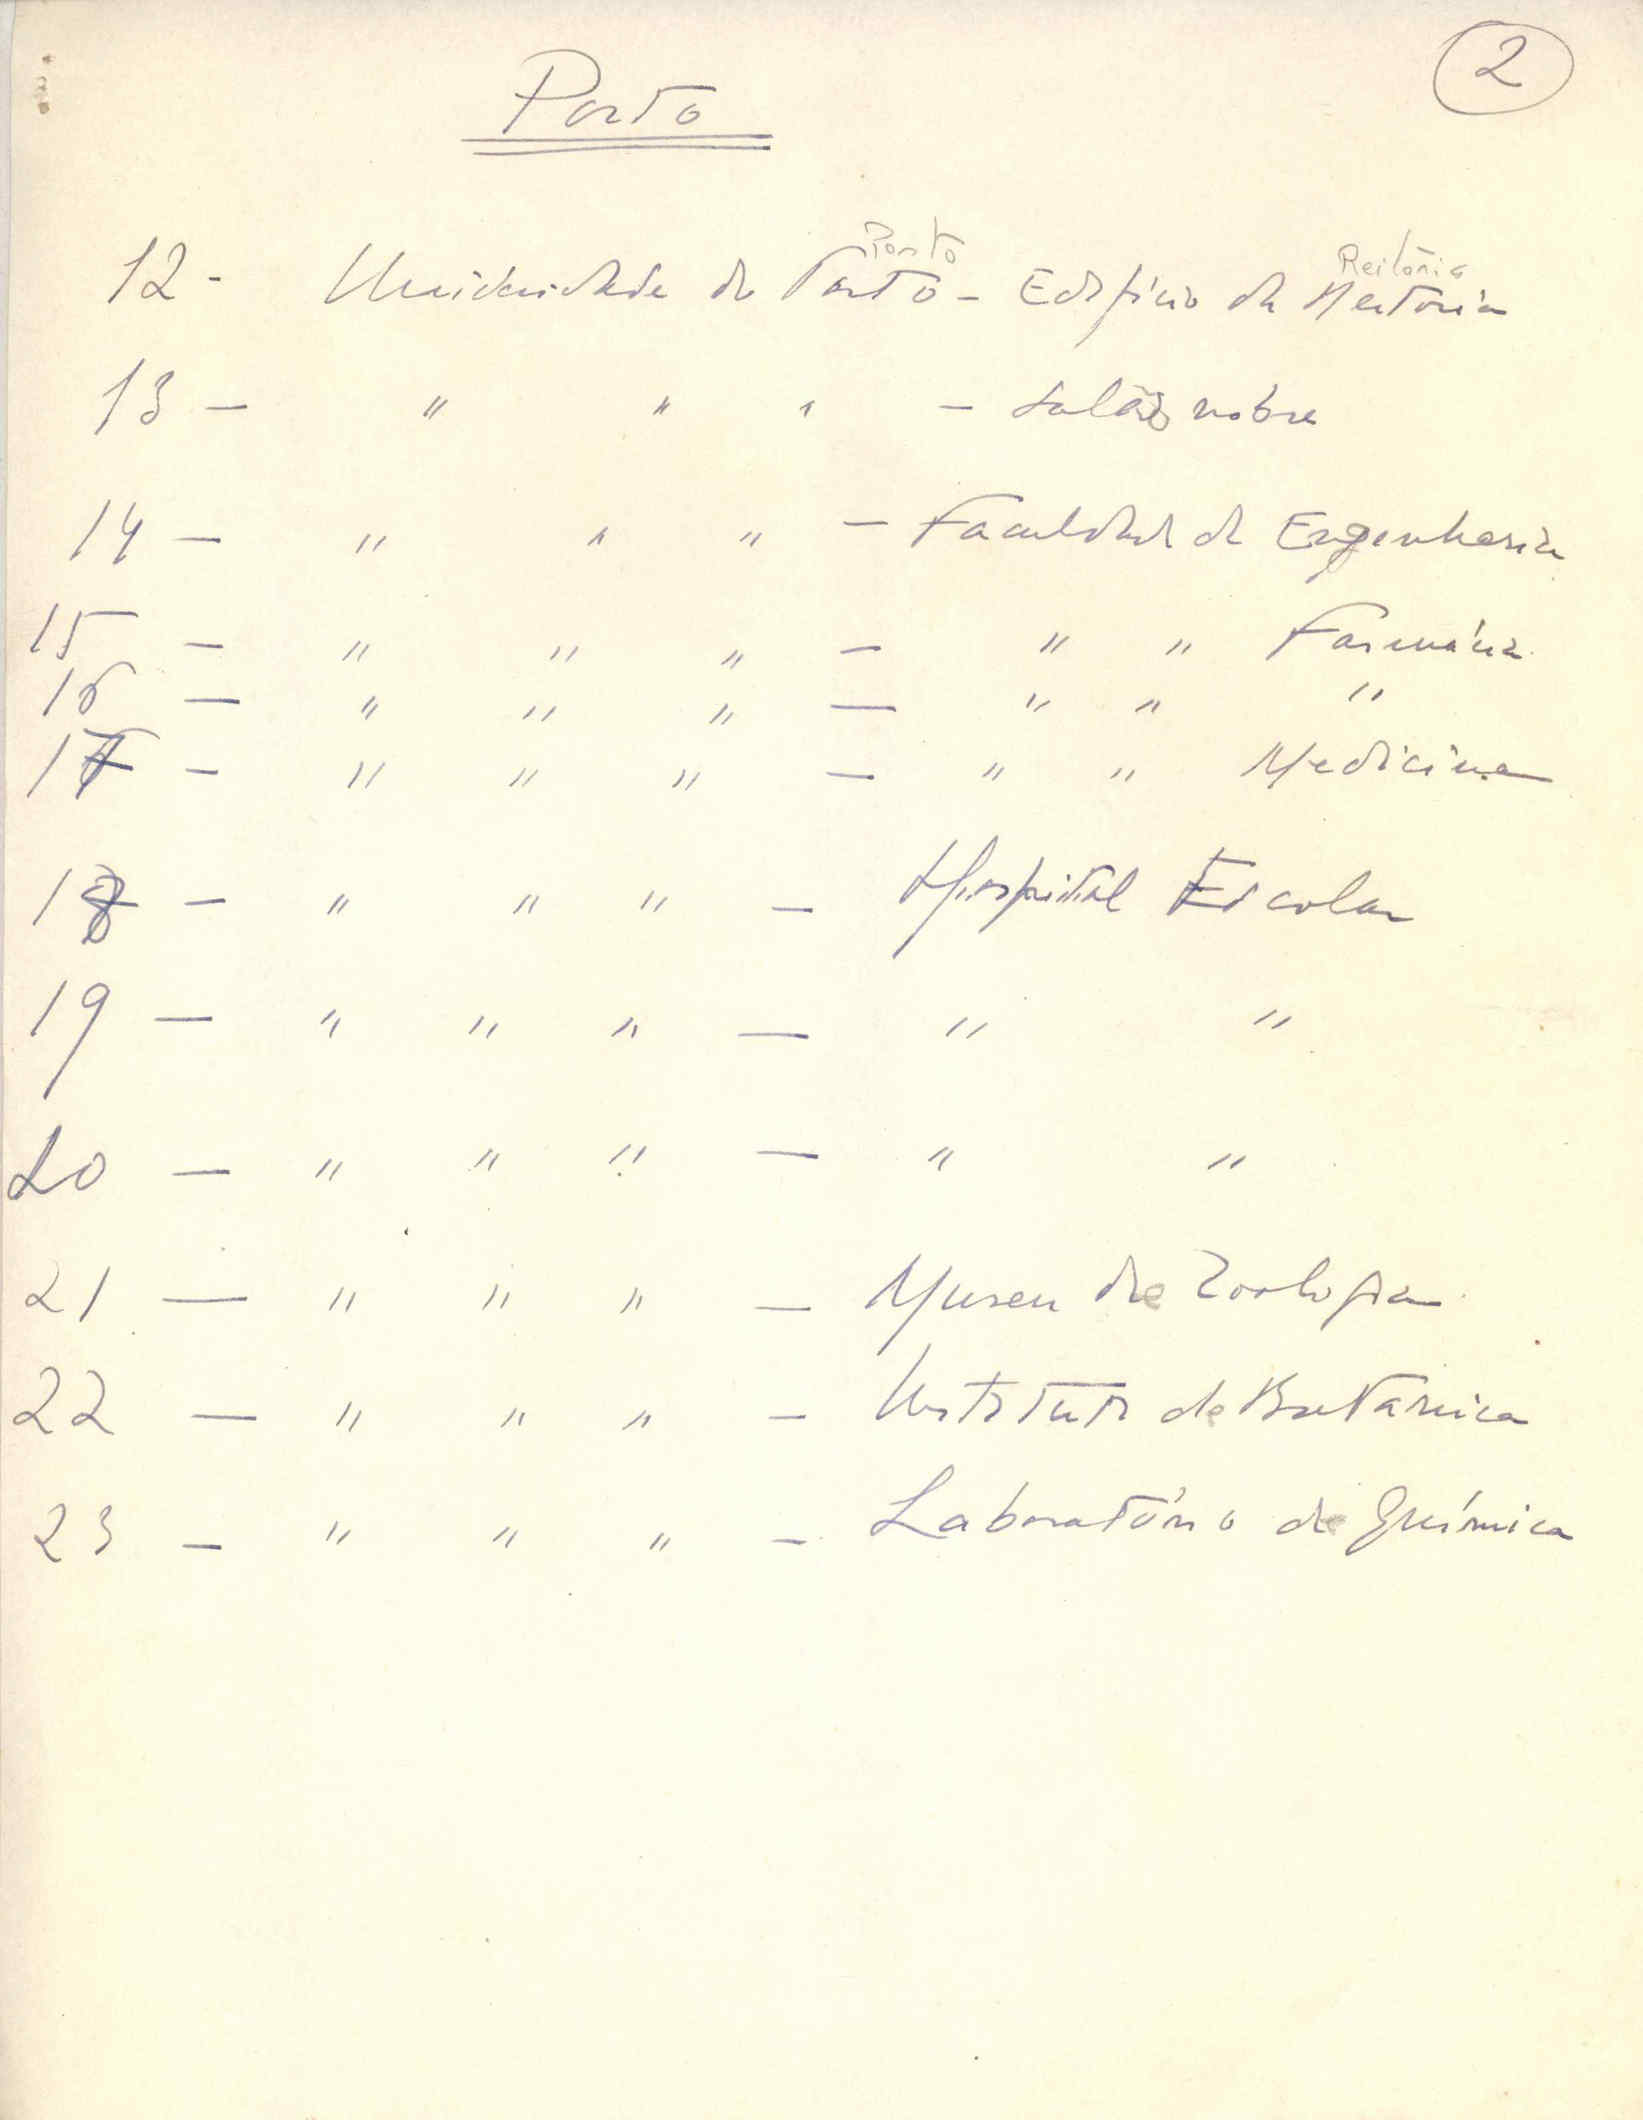 2
Porto
Porto Reitoria
12 - Universidade do Porto - Edifício da Reitoria
13 - " " " - Salão nobre
14 - " " " - Faculdade de Engenharia
15 - " " " - " " Farmácia
16 - " " " - " " "
17 - " " " - " " Medicina
18 - " " " - Hospital Escolar
19 - " " " - " "
20 - " " " - " "
21 - " " " - Museu de Zoologia
22 - " " " - Instituto de Botânica
23 - " " " - Laboratório de Química